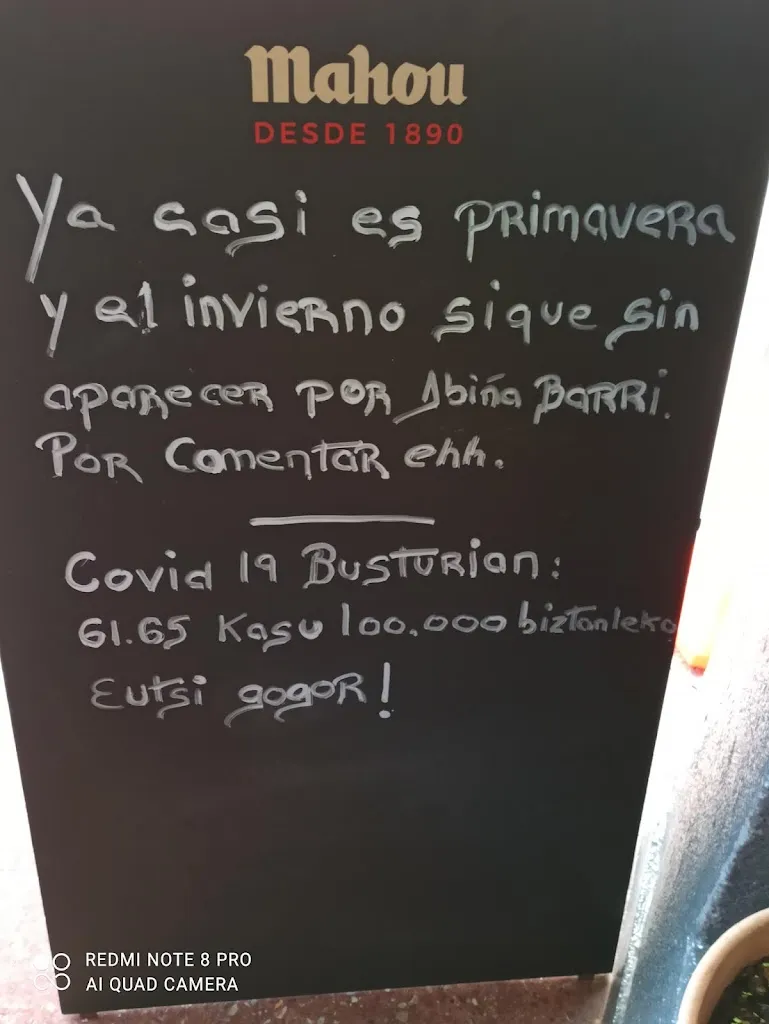 Mahou
DESDE 1890
Ya casi es primavera
y el invierno sigue sin
aparecer por Abiña Barri.
Por comentar ehh.
Covid 19 Busturian:
61.65 kasu 100.000 biztanleko
Eutsi gogor!
REDMI NOTE 8 PRO
AI QUAD CAMERA